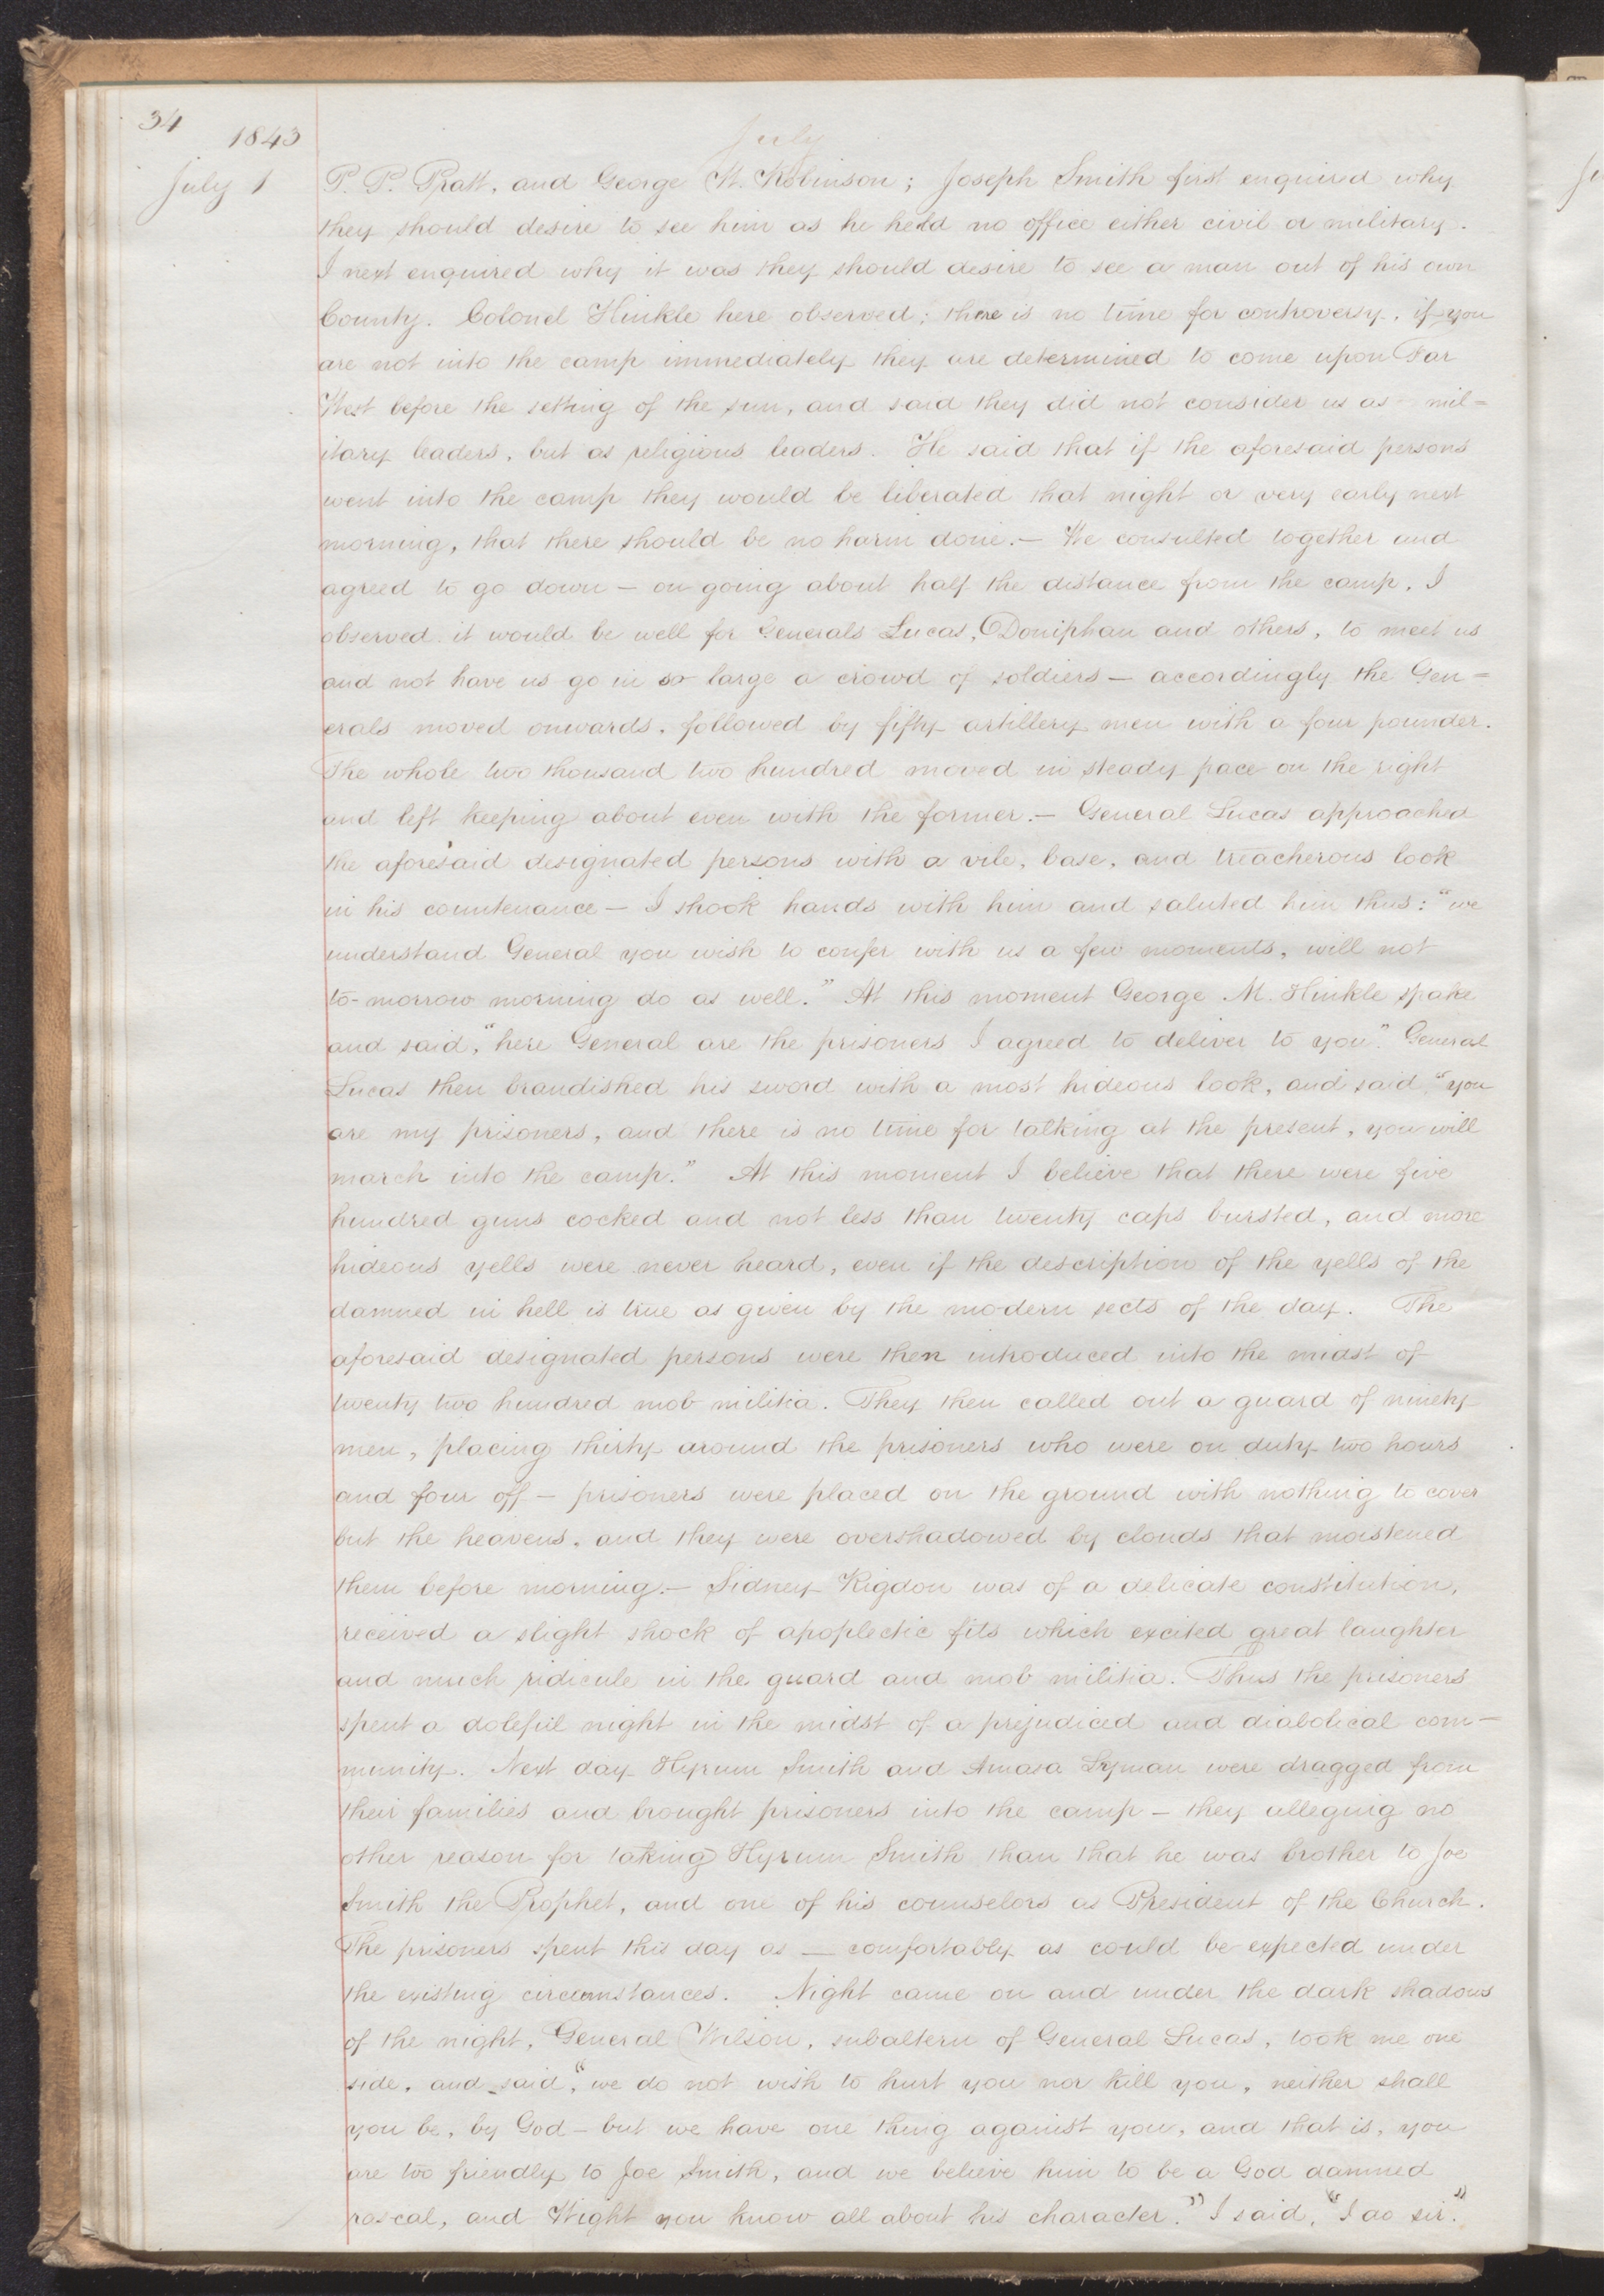 34
1843
July
July 1
P. P. Pratt, and George W. Robinson; Joseph Smith first enquired why
they should desire to see him as he held no office either civil or military.
I next enquired why it was they should desire to see a man out of his own
County. Colonel Hinkle here observed; there is no time for controversy, if you
are not into the camp immediately they are determined to come upon Far
West before the setting of the sun, and said they did not consider us as mil=
itary leaders, but as religious leaders. He said that if the aforesaid persons
went into the camp they would be liberated that night or very early next
morning, that there should be no harm done.— We consulted together and
agreed to go down — on going about half the distance from the camp, I
observed it would be well for Generals Lucas, Doniphan and others, to meet us
and not have us go in so large a crowd of soldiers — accordingly the Gen=
erals moved onwards, followed by fifty artillery men with a four pounder.
The whole two thousand two hundred moved in steady pace on the right
and left keeping about even with the former.— General Lucas approached
the aforesaid designated persons with a vile, base, and treacherous look
in his countenance — I shook hands with him and saluted him thus: "we
understand General you wish to confer with us a few moments, will not
to-morrow morning do as well." At this moment George M. Hinkle spake
and said, "here General are the prisoners I agreed to deliver to you". General
Lucas then brandished his sword with a most hideous look, and said "you
are my prisoners, and there is no time for talking at the present, you will
march into the camp." At this moment I believe that there were five
hundred guns cocked and not less than twenty caps bursted, and more
hideous yells were never heard, even if the description of the yells of the
damned in hell is true as given by the modern sects of the day. The
aforesaid designated persons were then introduced into the midst of
twenty two hundred mob militia. They then called out a guard of ninety
men, placing thirty around the prisoners who were on duty two hours
and four off — prisoners were placed on the ground with nothing to cover
but the heavens, and they were overshadowed by clouds that moistened
them before morning.— Sidney Rigdon was of a delicate constitution,
received a slight shock of apoplectic fits which excited great laughter
and much ridicule in the guard and mob militia. Thus the prisoners
spent a doleful night in the midst of a prejudiced and diabolical com=
munity. Next day Hyrum Smith and Amasa Lyman were dragged from
their families and brought prisoners into the camp — they alleging no
other reason for taking Hyrum Smith than that he was brother to Joe
Smith the Prophet, and one of his counselors as President of the Church.
The prisoners spent this day as — comfortably as could be expected under
the existing circumstances. Night came on and under the dark shadows
of the night, General Wilson, subaltern of General Lucas, took me one
side, and said, "we do not wish to hurt you nor kill you, neither shall
you be, by God — but we have one thing against you, and that is, you
are too friendly to Joe Smith, and we believe him to be a God damned
rascal, and Wight you know all about his character." I said, "I do sir."